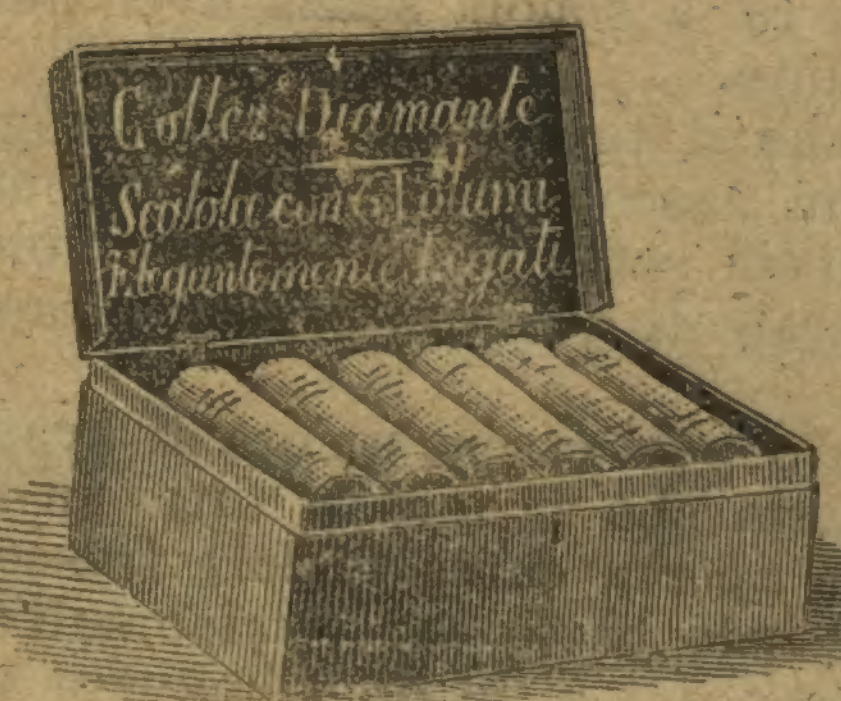 Collez. Diamante
Scatola con 6 Volumi
Elegantemente Legati